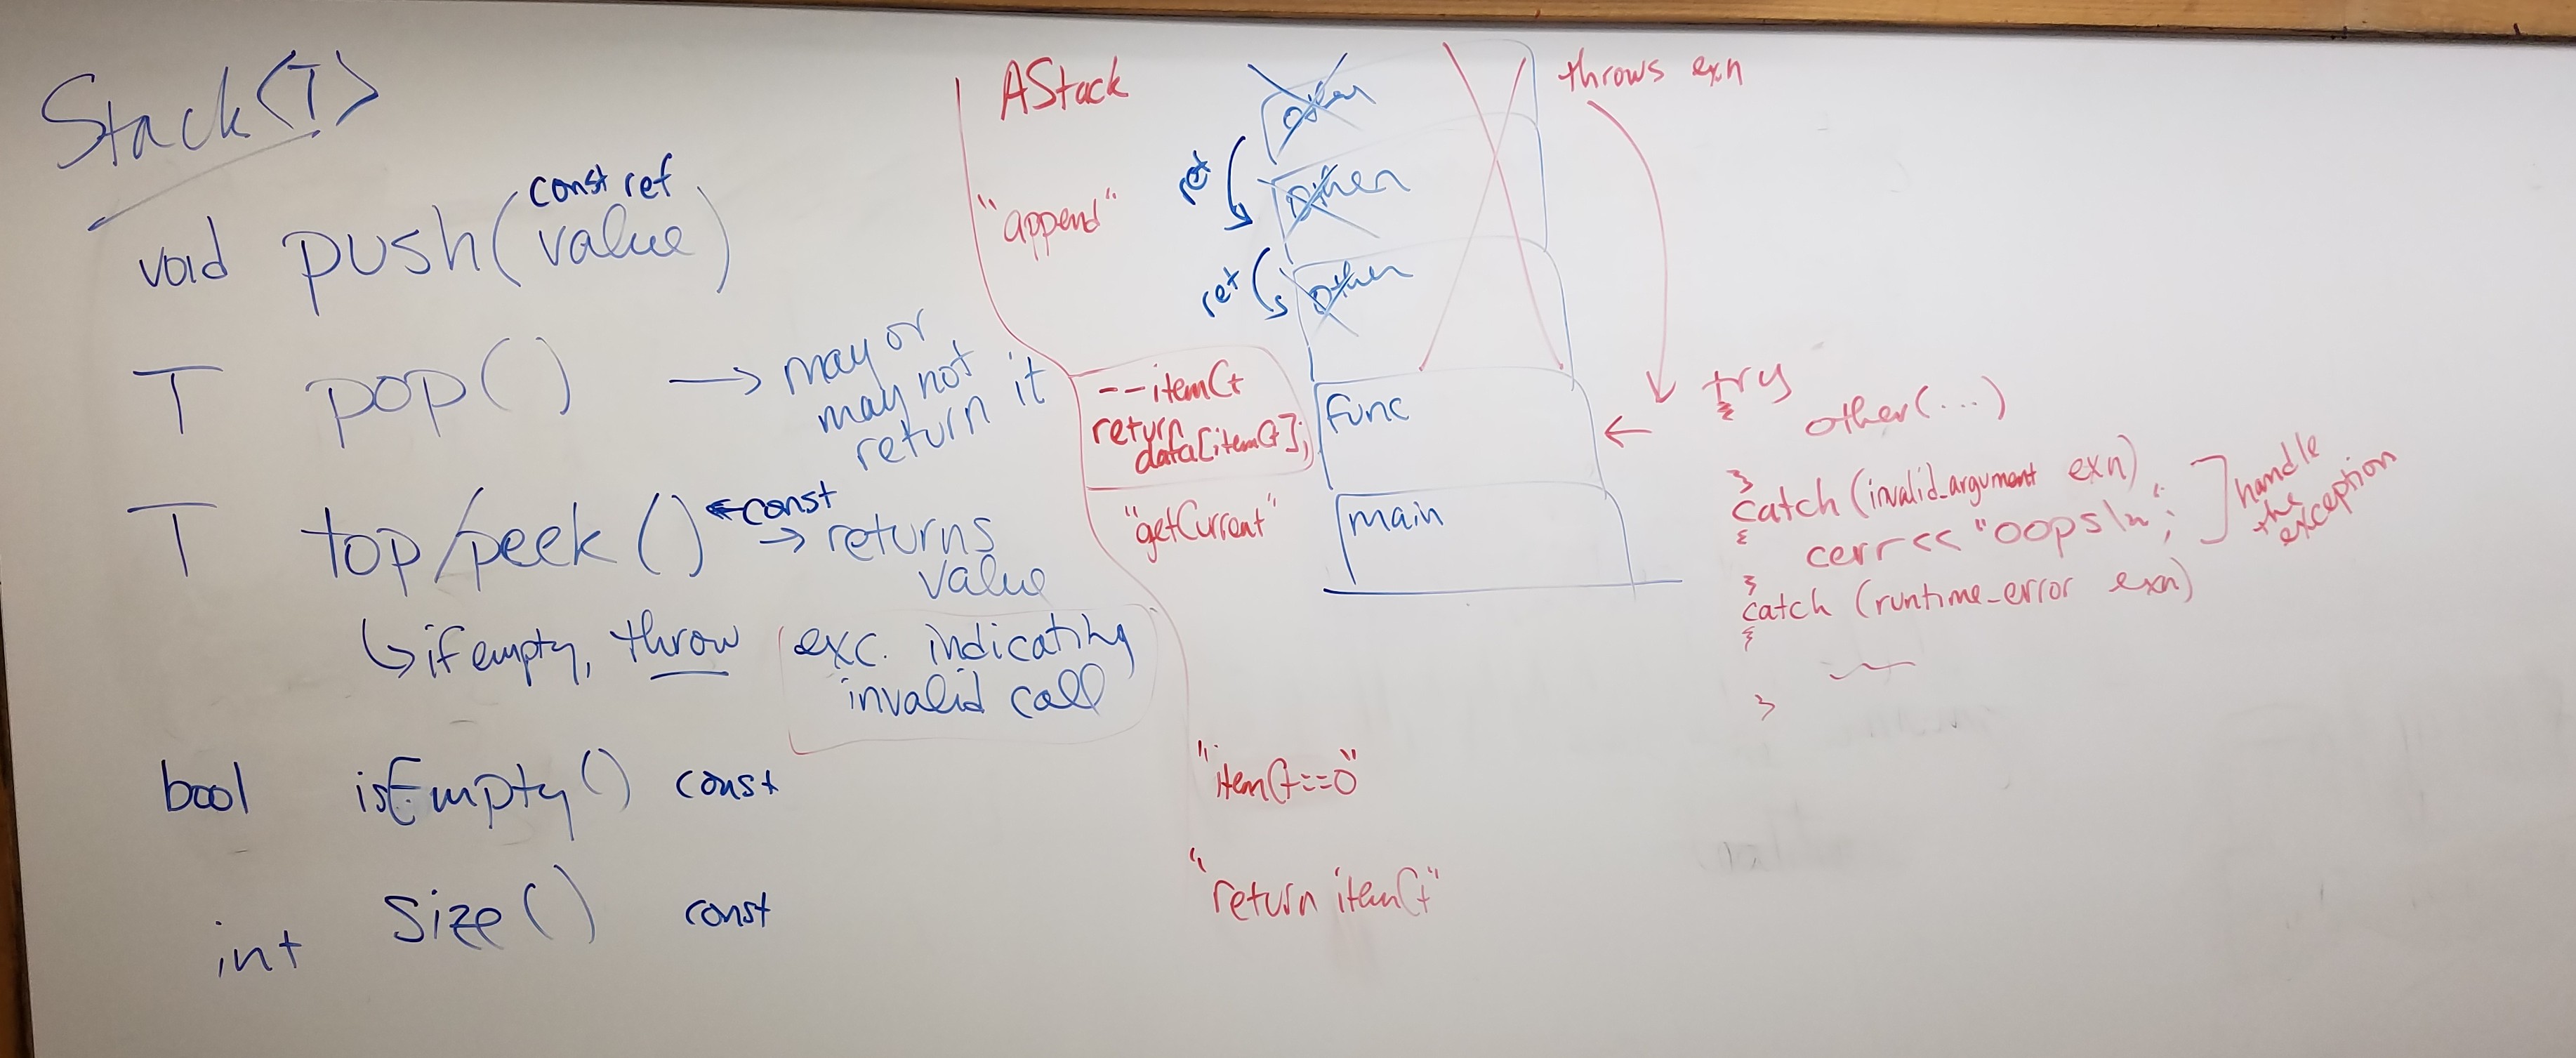 Stack<T>
void push(value)
const ref
T pop() → may or
may not
return it
T top/peek() ← const
→ returns
value
↳ if empty, throw exc. indicating
invalid call
bool isEmpty() const
int size() const
AStack
"append"
--itemCt
return
data[itemCt];
"getCurrent"
"itemCt==0"
"return itemCt"
other
ret
other
ret
other
func
main
throws exn
try
{
other(...)
}
catch (invalid_argument exn)
{
cerr<< "oops\n";
}
catch (runtime_error exn)
{
}
handle
the
exception